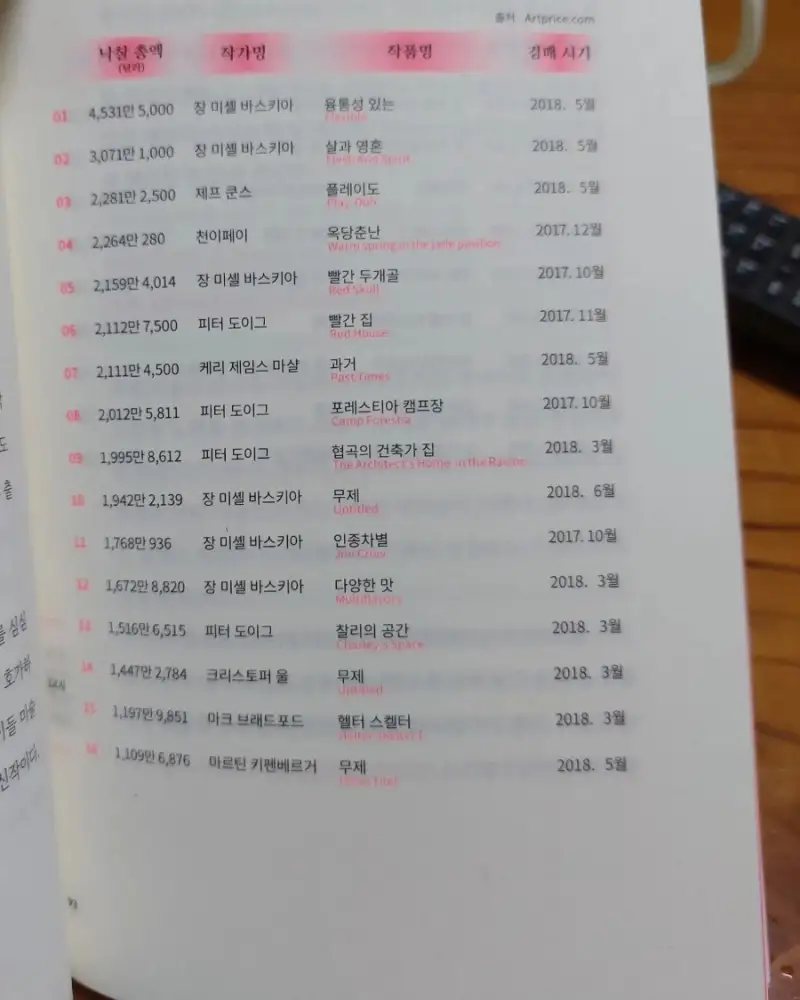 출처 Artprice.com
낙찰 총액 작가명 작품명 경매 시기
(달러)
01 4,531만 5,000 장 미셸 바스키아 융통성 있는 2018. 5월
Flexible
02 3,071만 1,000 장 미셸 바스키아 살과 영혼 2018. 5월
Flesh And Spirit
03 2,281만 2,500 제프 쿤스 플레이도 2018. 5월
Play-Doh
04 2,264만 280 천이페이 옥당춘난 2017. 12월
Warm spring in the jade pavilion
05 2,159만 4,014 장 미셸 바스키아 빨간 두개골 2017. 10월
Red Skull
06 2,112만 7,500 피터 도이그 빨간 집 2017. 11월
Red House
07 2,111만 4,500 케리 제임스 마샬 과거 2018. 5월
Past Times
08 2,012만 5,811 피터 도이그 포레스티아 캠프장 2017. 10월
Camp Forestia
09 1,995만 8,612 피터 도이그 협곡의 건축가 집 2018. 3월
The Architect's Home in the Ravine
10 1,942만 2,139 장 미셸 바스키아 무제 2018. 6월
Untitled
11 1,768만 936 장 미셸 바스키아 인종차별 2017. 10월
Jim Crow
12 1,672만 8,820 장 미셸 바스키아 다양한 맛 2018. 3월
Multiflavors
13 1,516만 6,515 피터 도이그 찰리의 공간 2018. 3월
Charley's Space
14 1,447만 2,784 크리스토퍼 울 무제 2018. 3월
Untitled
15 1,197만 9,851 마크 브래드포드 헬터 스켈터 2018. 3월
Helter Skelter I
16 1,109만 6,876 마르틴 키펜베르거 무제 2018. 5월
도
출
를 심심
호가하
이들 미술
신작이다.